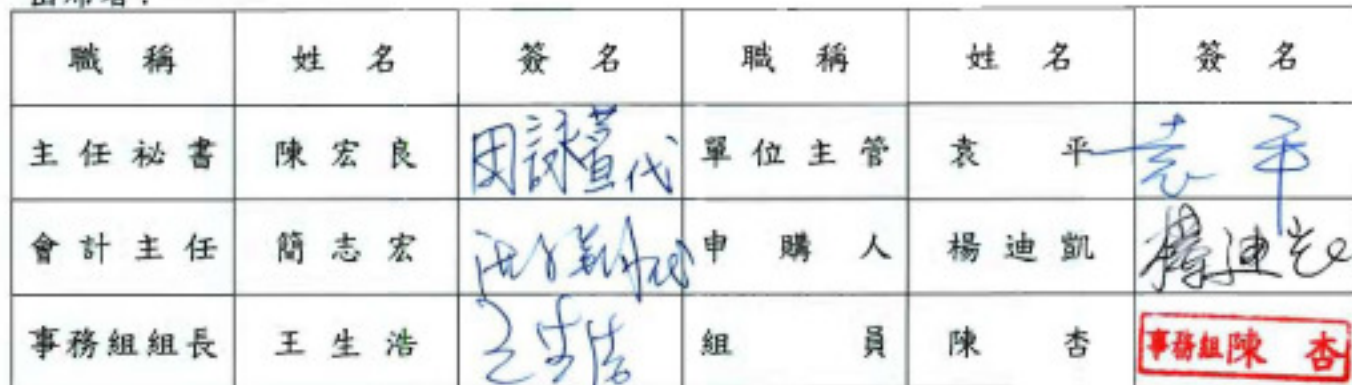 出席者：
職稱 姓名 簽名 職稱 姓名 簽名
主任祕書 陳宏良 田詠萱代 單位主管 袁平 袁平
會計主任 簡志宏 代 申購人 楊迪凱 楊迪凱
事務組組長 王生浩 王生浩 組員 陳杏 事務組陳杏